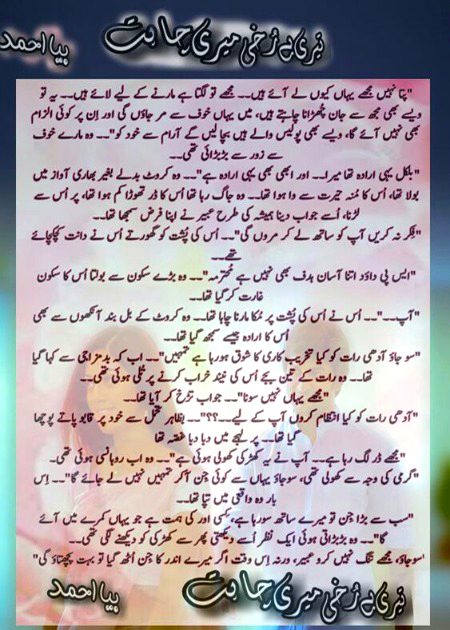 تیری بے رُخی میری چاہت
بیا احمد
"پتا نہیں مجھے یہاں کیوں لے آئے ہیں۔۔ مجھے تو لگتا ہے مارنے کے لیے لائے ہیں۔۔ یہ تو
ویسے بھی مجھ سے جان چھڑانا چاہتے ہیں، میں یہاں خوف سے مر جاؤں گی اور اِن پر کوئی الزام
بھی نہیں آئے گا، ویسے بھی پولیس والے ہیں بچالیں گے آرام سے خود کو"۔۔ وہ مارے خوف
سے زور سے بڑبڑائی تھی۔۔
"بلکل یہی ارادہ تھا میرا۔۔ اور ابھی بھی یہی ارادہ ہے"۔۔ وہ کروٹ بدلے بغیر بھاری آواز میں
بولا تھا، اُس کا مُنہ حیرت سے وا ہوا تھا۔۔ وہ جاگ رہا تھا اُس کا ڈر تھوڑا کم ہوا تھا، پر اُس سے
لڑنا، اُسے جواب دینا ہمیشہ کی طرح عبیر نے اپنا فرض سمجھا تھا۔۔
"فِکر نہ کریں آپ کو ساتھ لے کر مروں گی"۔۔ اُس کی پُشت کو گھورتے اُس نے دانت کچکچائے
تھے۔۔
"ایس پی داؤد اتنا آسان ہدف بھی نہیں ہے محترمہ"۔۔ وہ بڑے سکون سے بولتا اُس کا سکون
غارت کر گیا تھا۔۔
"آپ۔۔"۔۔ اُس نے اُس کی پشت پر مُکا مارنا چاہا تھا۔۔ وہ کروٹ کے بل بند آنکھوں سے بھی
اُس کا ارادہ جیسے سمجھ گیا تھا۔۔
"سو جاؤ آدھی رات کو کیا تخریب کاری کا شوق ہو رہا ہے تمہیں"۔۔ اب کہ بدمزاجی سے کہا گیا
تھا۔۔ وہ رات کے تین بجے اُس کی نیند خراب کرنے پر تُلی ہوئی تھی۔۔
"مجھے یہاں نہیں سونا"۔۔ جواب تڑخ کر آیا تھا۔۔
"آدھی رات کو کیا انتظام کروں آپ کے لیے۔۔؟؟"۔۔ بظاہر تحمل سے خود پر قابو پاتے پوچھا
گیا تھا۔۔ پر لہجے میں دبا دبا غصّہ تھا
"مجھے ڈر لگ رہا ہے۔۔ آپ نے یہ کھڑکی کھولی ہوئی ہے"۔۔ وہ اب روہانسی ہوئی تھی۔
"گرمی کی وجہ سے کھولی تھی، سوجاؤ یہاں سے کوئی جن آکر تمہیں نہیں لے جائے گا"۔۔ اِس
بار وہ واقعی میں تپا تھا۔۔
"سب سے بڑا جن تو میرے ساتھ سو رہا ہے، کِسی اور کی ہمت ہے جو یہاں کمرے میں آئے
گا"۔۔ وہ بڑبڑاتی ہوئی ایک نظر اُسے دیکھتی پھر سے کھڑکی کو دیکھنے لگی تھی۔۔
"سوجاؤ، مجھے تنگ نہیں کرو عبیر، ورنہ اِس وقت اگر میرے اندر کا جن اُٹھ گیا تو بہت پچھتاؤ گی"
تیری بے رُخی میری چاہت
بیا احمد